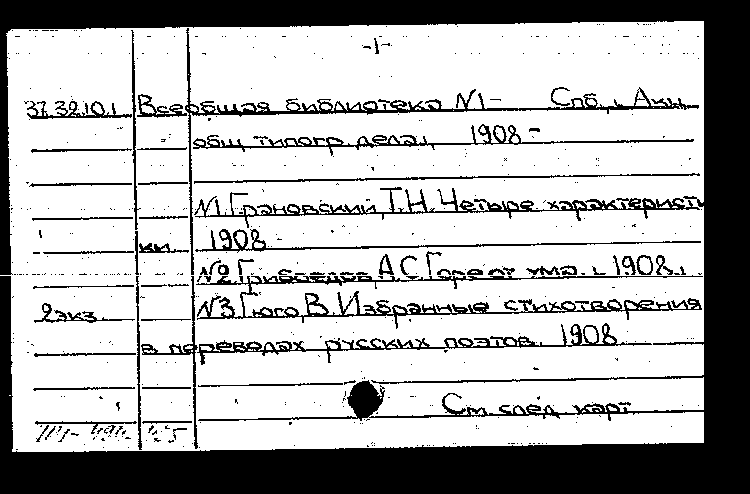 -1-
37.39.10.1 Всеобщая библиотека N1- Спб., Акц.
общ. типогр. дела, 1908-
N1. Грановский, Т.Н. Четыре характеристи
ки. 1908
N2 Грибоедов, А.С. Горе от ума. 1908.
2экз. N3. Гюго, В. Избранные стихотворения
в переводах русских поэтов. 1908
См. след. карт.